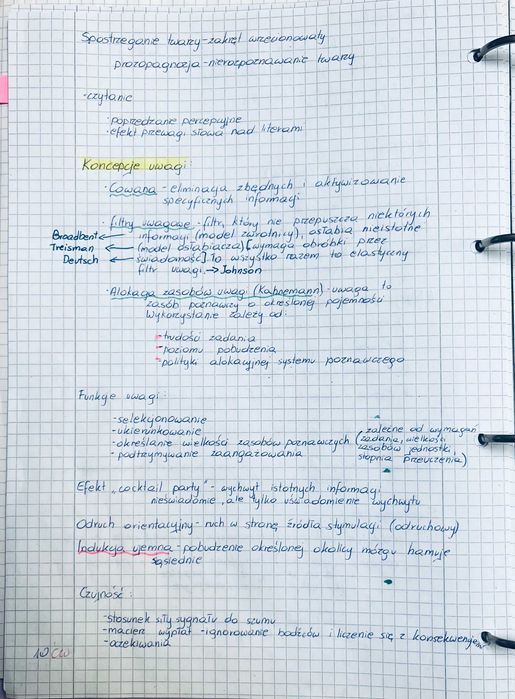 Spostrzeganie twarzy - zakręt wrzecionowaty
prozopagnozja - nierozpoznawanie twarzy
· czytanie
· poprzedzanie percepcyjne
· efekt przewagi słowa nad literami
Koncepcje uwagi:
· Cowana - eliminacja zbędnych i aktywizowanie
specyficznych informacji
· filtry uwagowe - filtr, który nie przepuszcza niektórych
Broadbent ← informacji (model zwrotnicy), osłabia nieistotne
Treisman ← (model osłabiacza) [wymaga obróbki przez
Deutsch ← świadomość] To wszystko razem to elastyczny
filtr uwagi → Johnson
· Alokacja zasobów uwagi (Kahnemann) - uwaga to
zasób poznawczy o określonej pojemności
Wykorzystanie zależy od:
- trudości zadania
- poziomu pobudzenia
- polityki alokacyjnej systemu poznawczego
Funkcje uwagi:
- selekcjonowanie
- ukierunkowanie
- określanie wielkości zasobów poznawczych (zależne od wymagań
zadania, wielkości
zasobów jednostki,
stopnia przeuczenia)
- podtrzymywanie zaangażowania
Efekt „cocktail party" - wychwyt istotnych informacji
nieświadomie, ale tylko uświadomienie wychwytu
Odruch orientacyjny - ruch w stronę źródła stymulacji (odruchowy)
Indukcja ujemna - pobudzenie określonej okolicy mózgu hamuje
sąsiednie
Czujność:
- stosunek siły sygnału do szumu
- macierz wypłat - ignorowanie bodźców i liczenie się z konsekwencjami
- oczekiwania
10 ćw